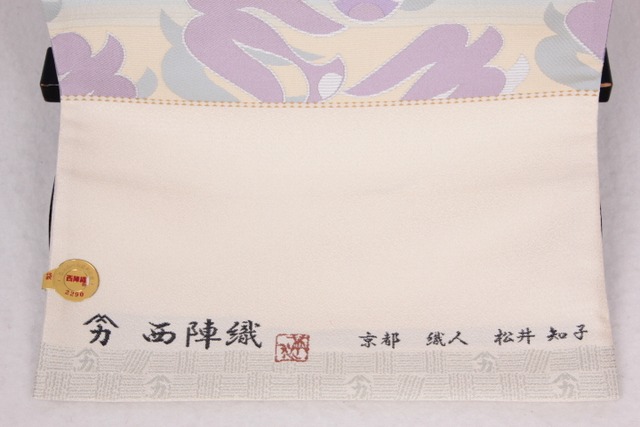 西陣織
2290
西陣織 京都 織人 松井 知子